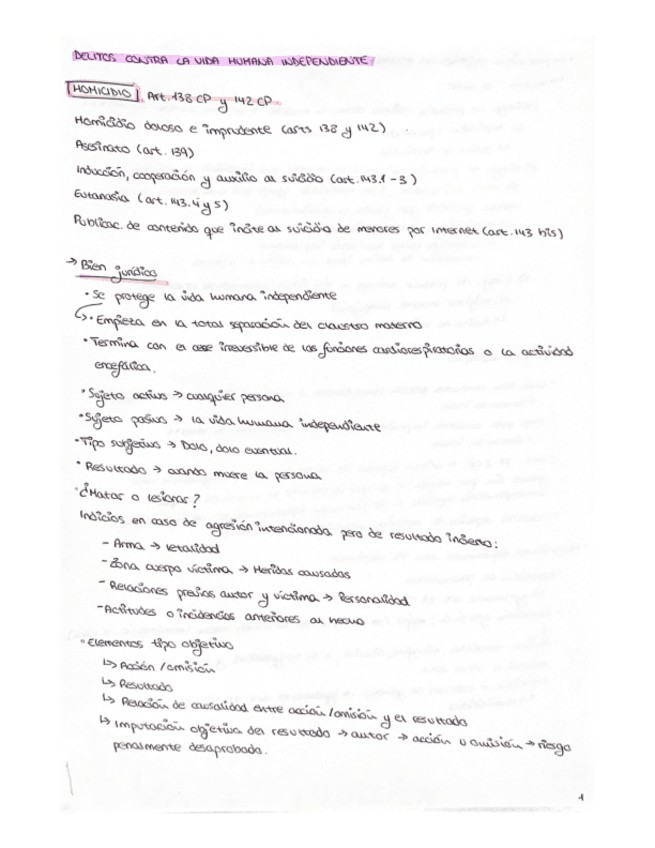 DELITOS CONTRA LA VIDA HUMANA INDEPENDIENTE
HOMICIDIO Art. 138 CP y 142 CP
Homicidio doloso e imprudente (arts 138 y 142)
Asesinato (art. 139)
Inducción, cooperación y auxilio al suicidio (art. 143.1-3)
Eutanasia (art. 143.4 y 5)
Publicac. de contenido que incite al suicidio de menores por internet (art. 143 bis)
→ Bien jurídico
· Se protege la vida humana independiente
↳ · Empieza en la total separación del claustro materno
· Termina con el cese irreversible de las funciones cardiorespiratorias o la actividad
encefálica.
· Sujeto activo → cualquier persona
· Sujeto pasivo → la vida humana independiente
· Tipo subjetivo → Dolo, dolo eventual.
· Resultado → cuando muere la persona
· ¿Matar o lesionar?
Indicios en caso de agresión intencionada pero de resultado incierto:
- Arma → letalidad
- Zona cuerpo víctima → Heridas causadas
- Relaciones previas autor y víctima → Personalidad
- Actitudes o incidencias anteriores al hecho
· Elementos tipo objetivo
↳ Acción / omisión
↳ Resultado
↳ Relación de causalidad entre acción / omisión y el resultado
↳ Imputación objetiva del resultado → autor → acción u omisión → riesgo
penalmente desaprobado.
1